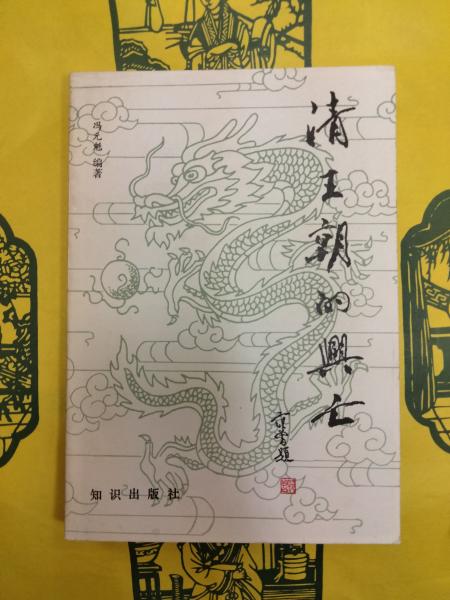 清王朝的興亡
冯元魁 编著
知识出版社